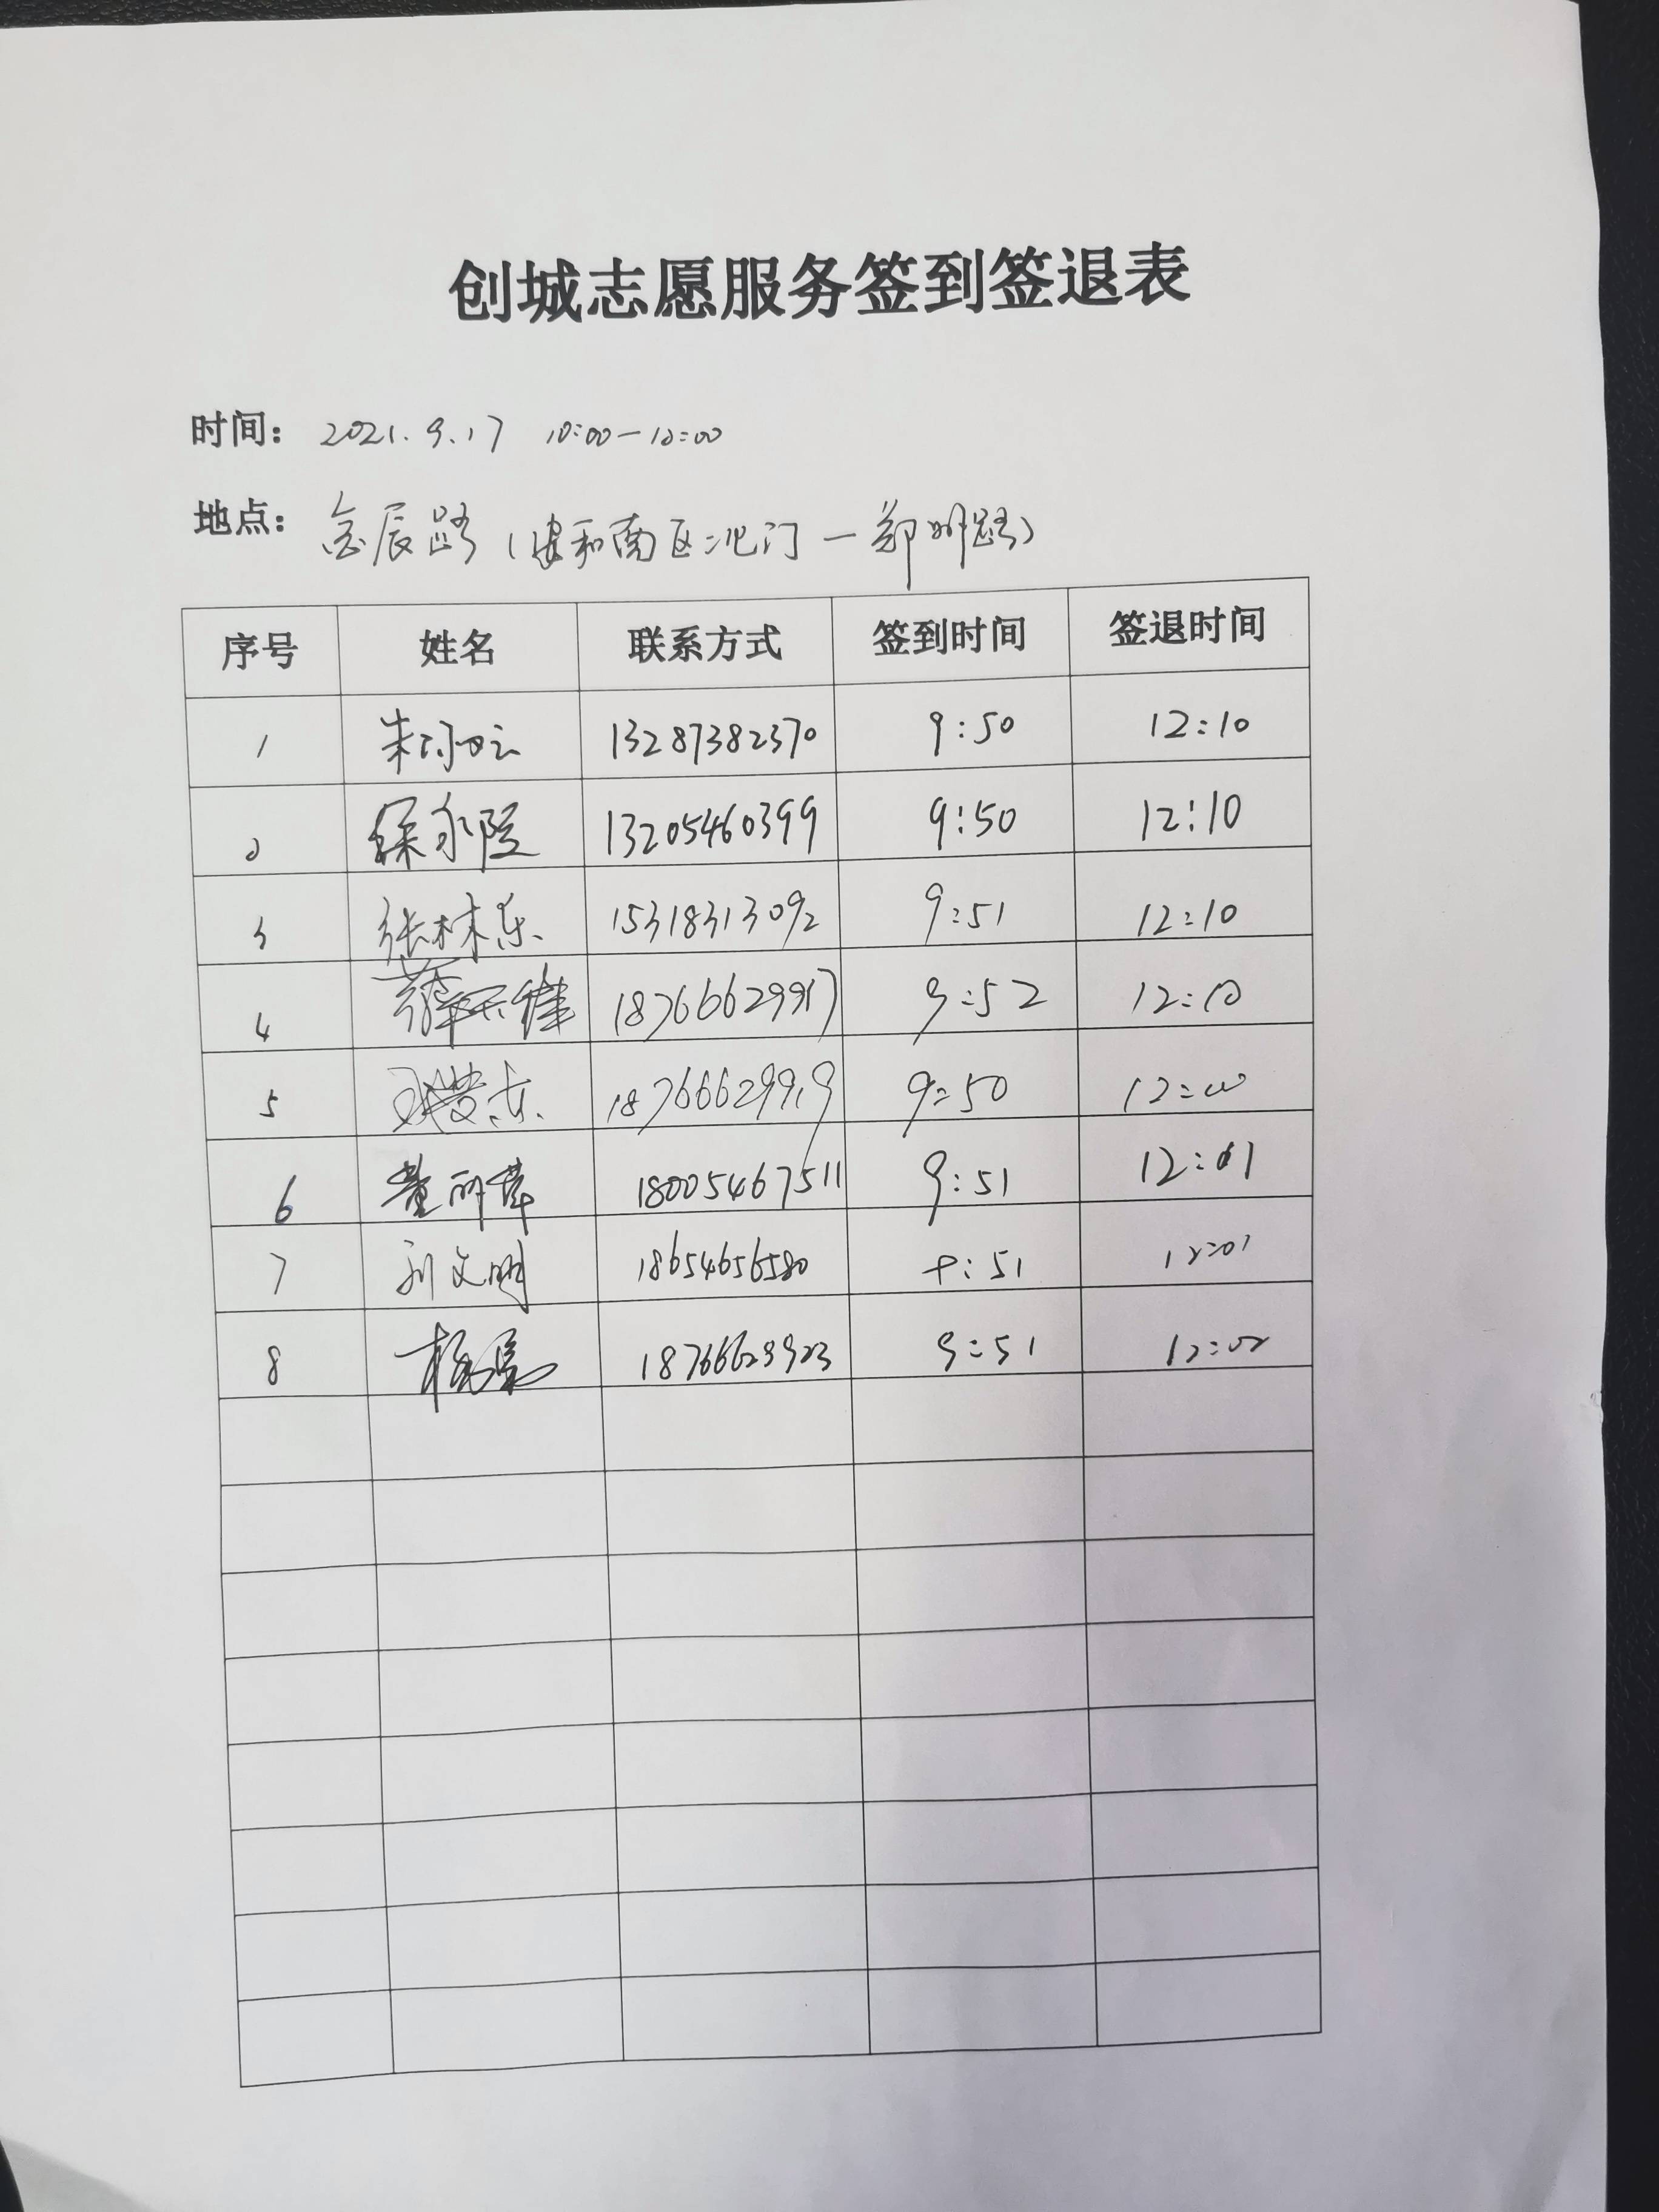 创城志愿服务签到签退表
时间: 2021.9.17 10:00—12:00
地点: 辰路(建和南区北门—郑州路)
序号 姓名 联系方式 签到时间 签退时间
1 朱 13287382370 9:50 12:10
2 永 13205460399 9:50 12:10
3 张林东 15318313092 9:51 12:10
4 薛 18766629917 9:52 12:10
5 18766629919 9:50 12:00
6 董丽萍 18005467511 9:51 12:01
7 刘文明 18654656580 9:51 12:01
8 杨 18766629923 9:51 12:02